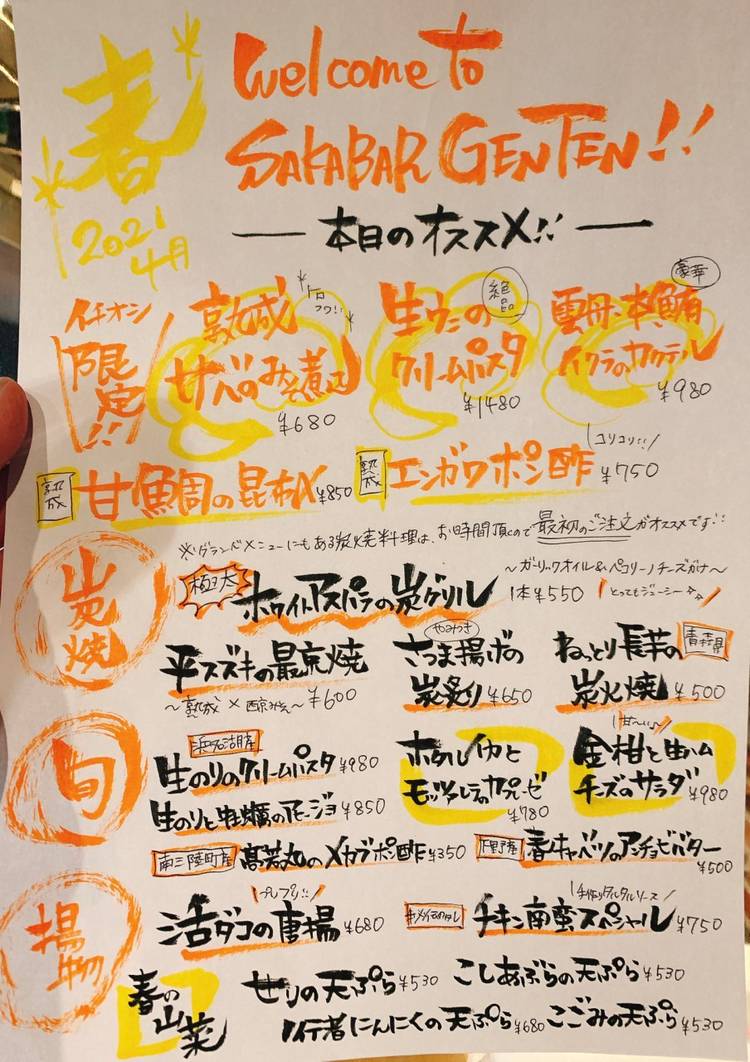 春
2021
4月
Welcome to
SAKABAR GENTEN!!
本日のオススメ!!
イチオシ
限定!!
熟成
サバのみそ煮込
¥680
絶品
生ウニの
クリームパスタ
¥1480
豪華
雲丹・本鮪
イクラのカクテル
¥980
熟成
甘鯛の昆布〆 ¥850
熟成
エンガワポン酢 ¥750
コリコリ!!
※グランドメニューにもある炭焼料理は、お時間頂くので最初のご注文がオススメです!!
炭焼
極太
ホワイトアスパラの炭グリル
~ガーリックオイル&ペコリーノチーズがけ~
1本¥550
とってもジューシー☆☆
平スズキの最京焼
~熟成×西京みそ~ ¥600
やみつき
さつま揚げの
炭炙り ¥650
ねっとり長芋の
青森県
炭火焼 ¥500
旬
浜名湖産
生のりのクリームパスタ ¥980
生のりと牡蠣のアヒージョ ¥850
ホタルイカと
モッツァレラのカプレーゼ
¥780
甘~い
金柑と生ハム
チーズのサラダ ¥980
南三陸町産
高若丸のメカブポン酢 ¥350
春キャベツのアンチョビバター
¥500
揚物
プリプリ!!
活ダコの唐揚 ¥680
手作りタルタルソース
チキン南蛮スペシャル ¥750
春の
山菜
せりの天ぷら ¥530
こしあぶらの天ぷら ¥530
行者にんにくの天ぷら ¥680
こごみの天ぷら ¥530